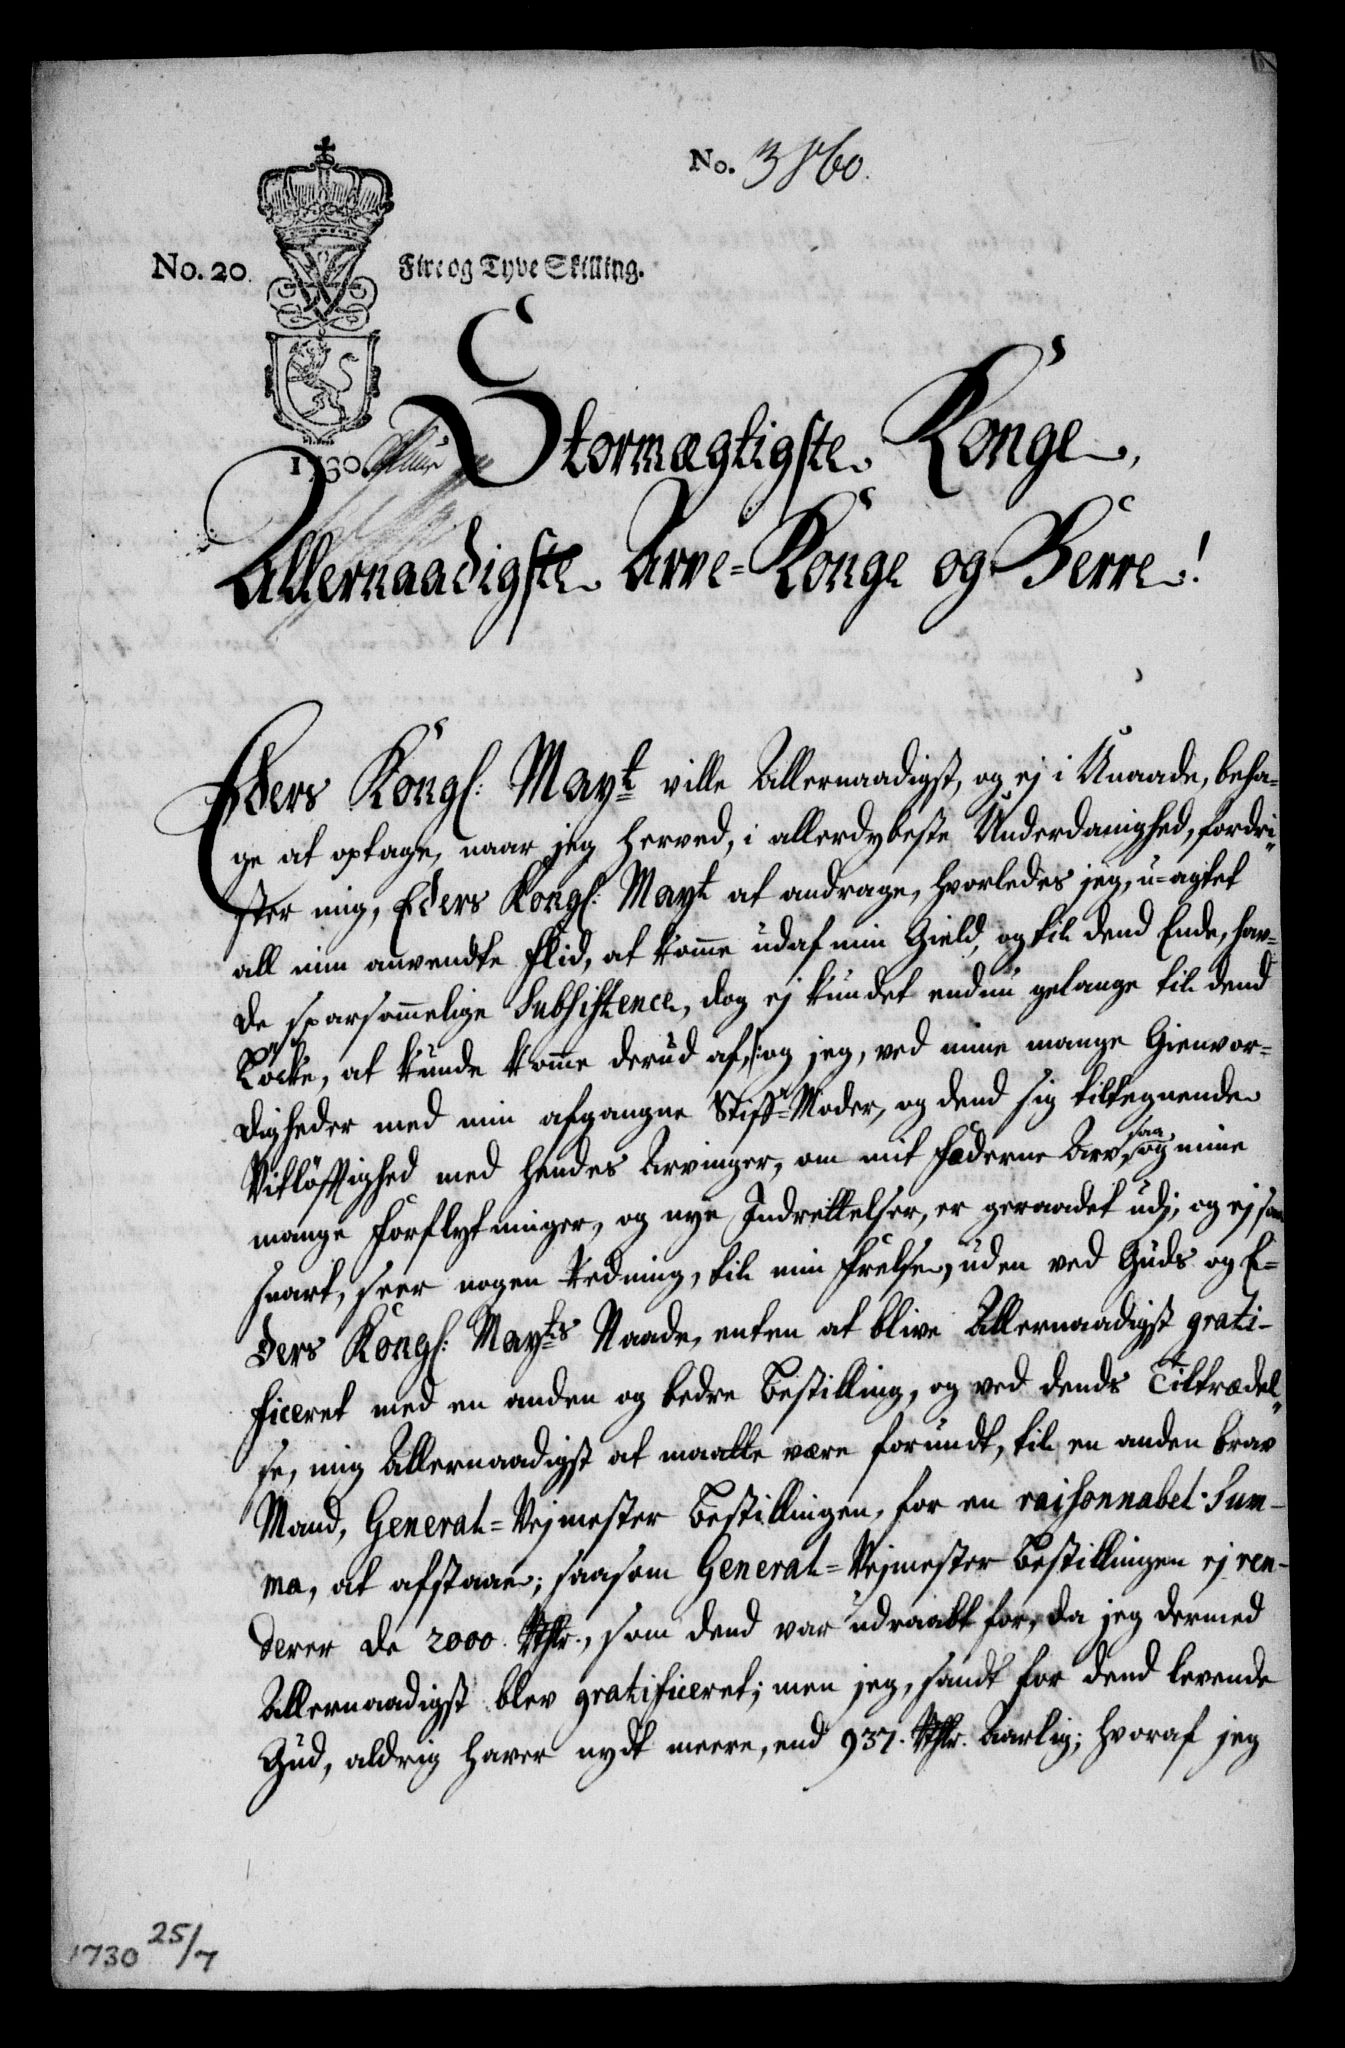 No. 3860.
No. 20. Fire og Tyve Skilling.
1730
Stormægtigste Konge,
Allernaadigste Arve-Konge og Herre!
Eders Kongl: Mayt ville Allernaadigst, og ej i Unaade, beha-
ge at optage, naar jeg herved, i allerdybeste Underdanighed, fordri-
ster mig, Eders Kongl: Mayt at andrage, hvorledes jeg, u-agtet
all min anvendte Flid, at komme udaf min Gield, og til dend Ende, hav-
de sparsommelige Subsistence, dog ej kundet endnu gelange til dend
Løcke, at kunde komme derud af, /: og jeg, ved mine mange Gienvor-
digheder med min afgangne Stiff-Moder, og dend sig tiltegnende
Vitløftighed med hendes Arvinger, om mit Fæderne Arv, saa og mine
mange Forflytninger, og nye Indrettelser, er geraadet udj, og ej saa
snart, seer nogen Redning, til min Frelse, uden ved Guds og E-
ders Kongl: Mayts Naade, enten at blive Allernaadigst grati-
ficeret med en anden og bedre Bestilling, og ved dends Tiltrædel-
se, mig Allernaadigst at maatte være forundt, til en anden brav
Mand, General-Vejmester Bestillingen, for en raisonnabel Sum-
ma, at afstaae; saasom General-Vejmester Bestillingen ej ren-
derer de 2000. Rthlr., som dend var udraabt for, da jeg dermed
Allernaadigst blev gratificeret; men jeg, sandt for dend levende
Gud, aldrig haver nydt meere, end 937. Rthlr. Aarlig; hvoraf jeg
1730 25/7